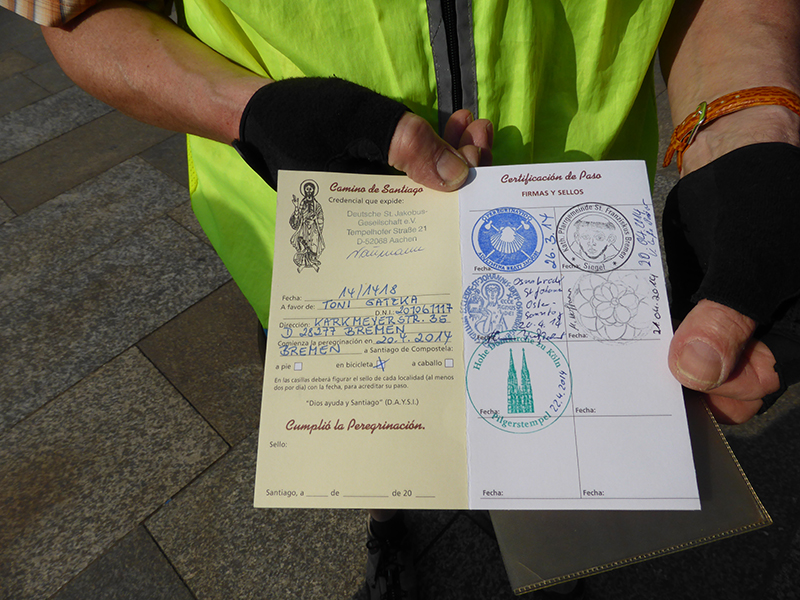 Camino de Santiago
Credencial que expide:
Deutsche St. Jakobus-
Gesellschaft e.V.
Tempelhofer Straße 21
D-52068 Aachen
Fecha: 14/1418
A favor de: TONI GATEKA
D.N.I.: 201061117
Dirección: KARKMEYERSTR. 3E
D 28277 BREMEN
Comienza la peregrinación en 20.4.2014
BREMEN a Santiago de Compostela:
a pie en bicicleta a caballo
En las casillas deberá figurar el sello de cada localidad (al menos
dos por día) con la fecha, para acreditar su paso.
"Dios ayuda y Santiago" (D.A.Y.S.I.)
Cumplió la Peregrinación.
Sello:
Santiago, a de de 20
Certificación de Paso
FIRMAS Y SELLOS
Fecha: 26.3.14
Kath. Pfarrgemeinde St. Franziskus Bremen
Siegel
Osnabrück
20.4.14
21.04.2014
Hohe Domkirche zu Köln
Pilgerstempel
22.4.2014
Fecha:
Fecha:
Fecha:
Fecha: